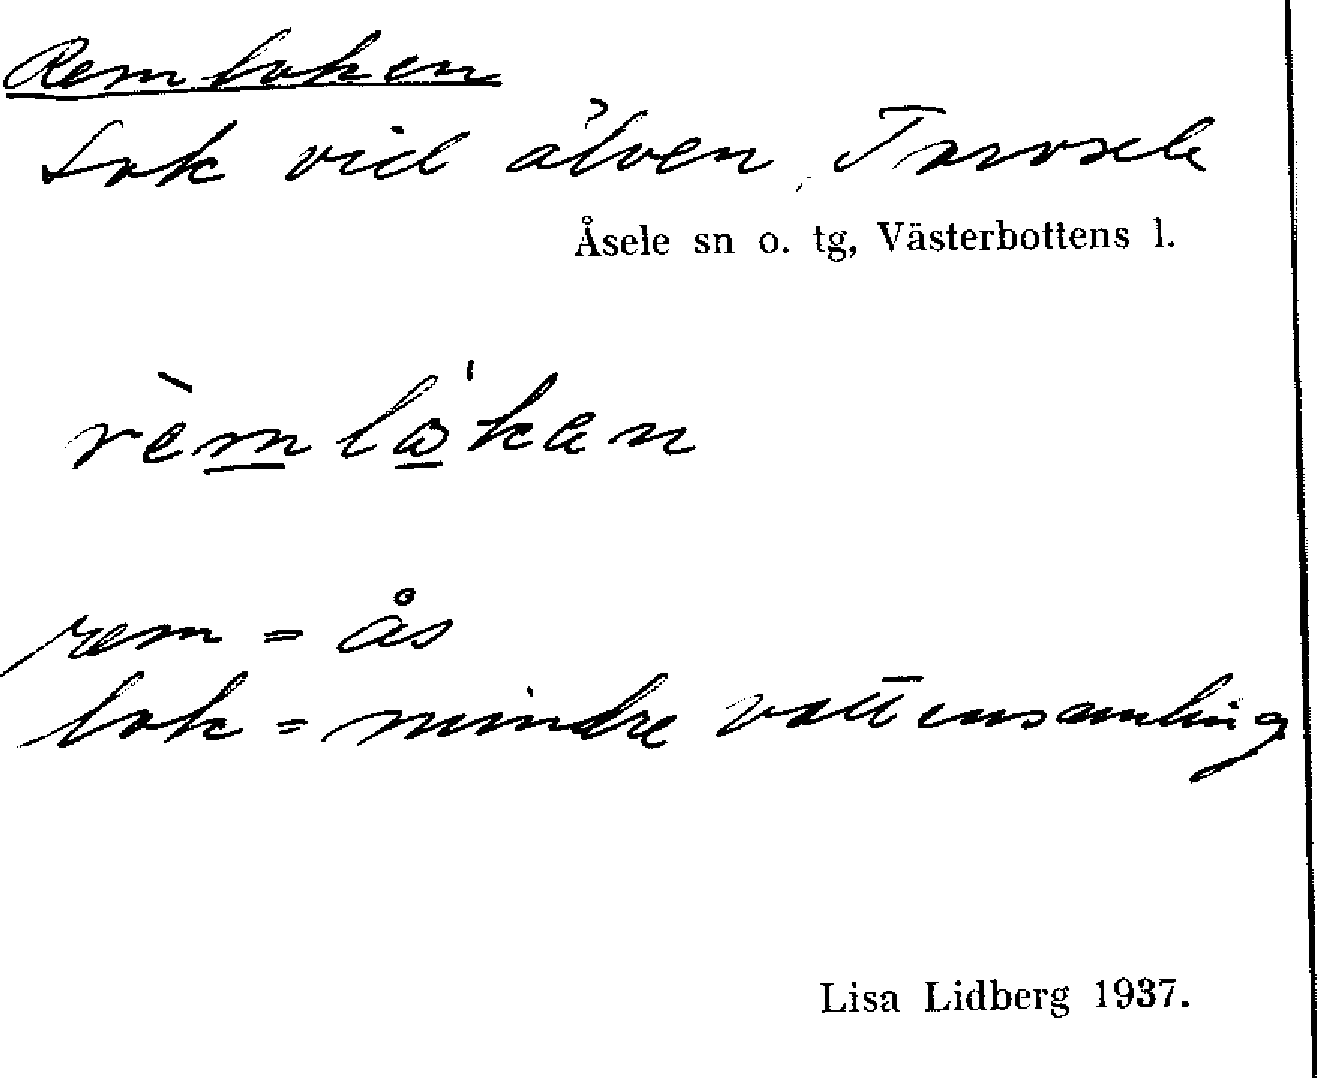 Remloken
Lok vid älven, Torvsele
Åsele sn o. tg, Västerbottens l.
rèmlω'kan
rem = ås
lok = mindre vattensamling
Lisa Lidberg 1937.